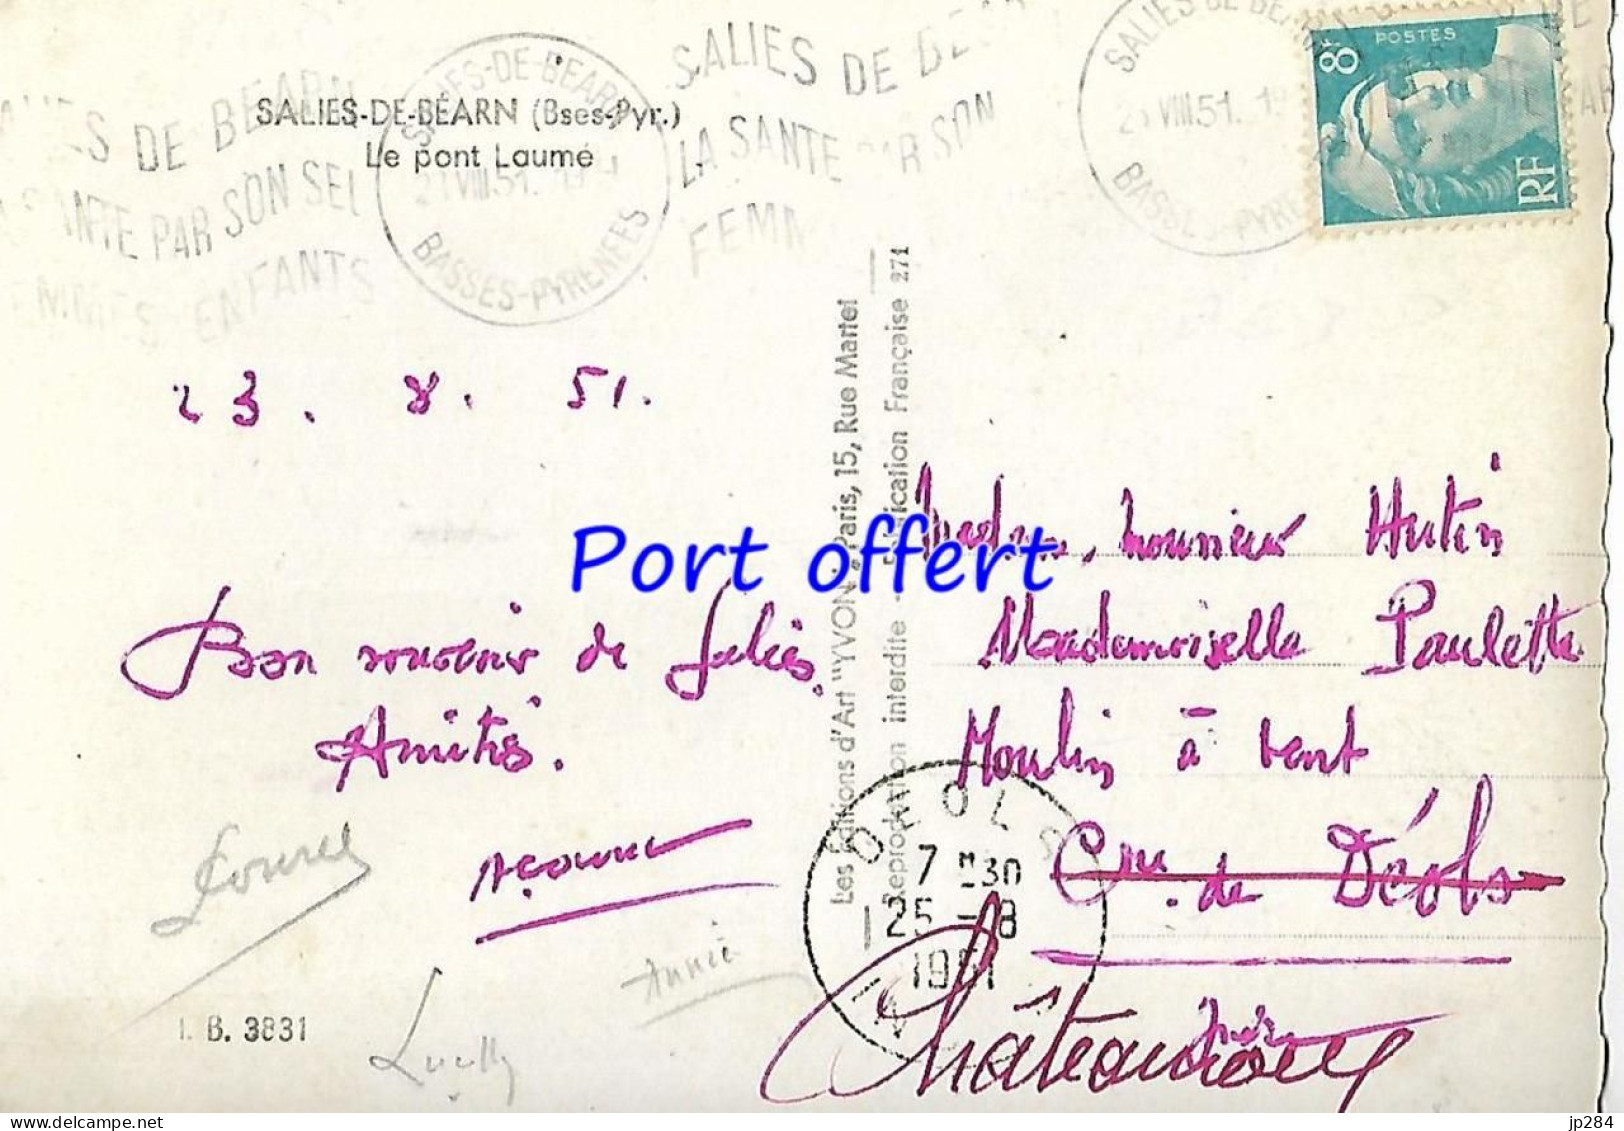 SALIES DE BÉARN
LA SANTÉ PAR SON SEL
FEMMES ENFANTS
SALIES-DE-BÉARN
21 VIII.51.
BASSES-PYRENEES
SALIES DE BÉARN
LA SANTE PAR SON
FEMM
SALIES DE BEARN
VIII.51.
BASSES-PYRE
8F
POSTES
RF
SALIES-DE-BÉARN (Bses-Pyr.)
Le pont Laumé
23. 8. 51.
Bon souvenir de Salies.
Amitiés.
Annie
I. B. 3831
Les Éditions d'Art "YVON", Paris, 15, Rue Martel
Reproduction interdite - Fabrication Française 271
Port offert
Madame, Monsieur Hutin
Mademoiselle Paulette
Moulin à Vent
Cne. de Déols
Indre
Châteauroux
DEOLS
7 H30
25 - 8
1951
delcampe.net
jp284